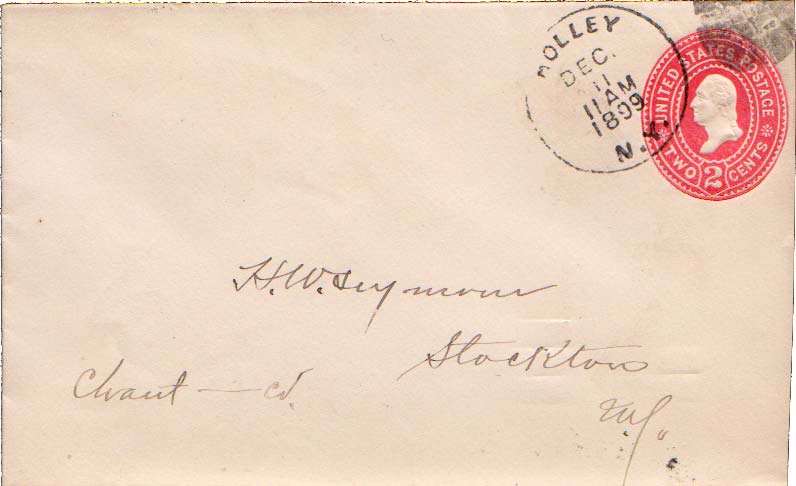 HOLLEY
DEC.
11
11AM
1899
N.Y.
UNITED STATES POSTAGE
TWO 2 CENTS
H.W. Seymour
Stockton
Chaut — co.
N.Y.